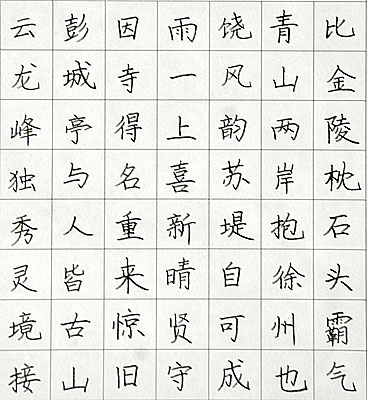 云龙峰独秀灵境接
彭城亭与人皆古山
因寺得名重来惊旧
雨一上喜新晴贤守
饶风韵苏堤自可成
青山两岸抱徐州也
比金陵枕石头霸气